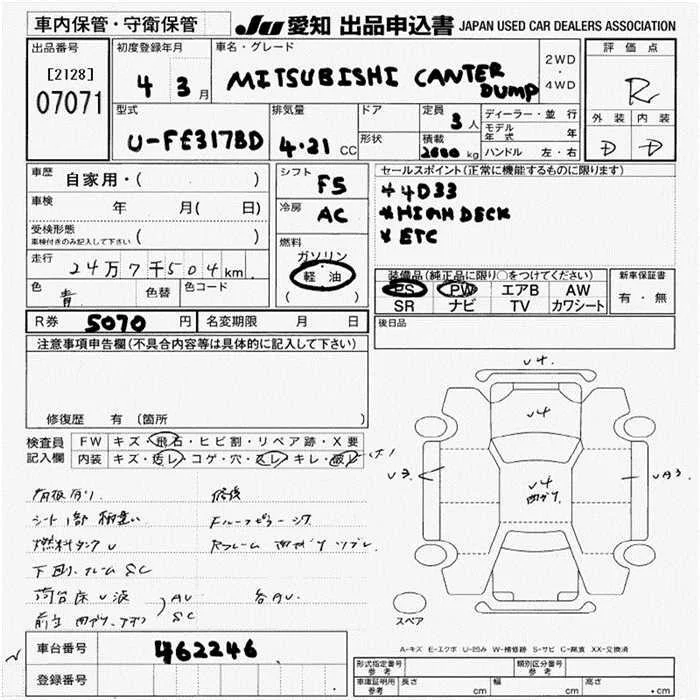 車内保管・守衛保管
JU 愛知 出品申込書 JAPAN USED CAR DEALERS ASSOCIATION
出品番号
[2128]
07071
初度登録年月
4 3月
車名・グレード
MITSUBISHI CANTER DUMP
2WD
・
4WD
評価点
R
外装 内装
D D
型式
U-FE317BD
排気量
4.21 CC
ドア
形状
定員
3人
積載
kg
ディーラー・並行
モデル年式 年
ハンドル 左・右
車歴
自家用・( )
車検
年 月( 日)
受検形態
車検付きのみ記入して下さい ( )
走行
24万7千504km
色
青
色替
色コード
シフト
F5
冷房
AC
燃料
ガソリン
軽油
( )
セールスポイント(正常に機能するものに限ります)
*4D33
*HIGH DECK
* ETC
装備品(純正品に限り○をつけてください)
PS PW エアB AW
SR ナビ TV カワシート
新車保証書
有・無
R券 5070 円
名変期限 月 日
後日品
注意事項申告欄(不具合内容等は具体的に記入して下さい)
修復歴 有 (箇所 )
検査員
記入欄
FW キズ・飛石・ヒビ割・リペア跡・X要
内装 キズ・汚レ・コゲ・穴・スレ・キレ・破レ
シート1部
燃料タンク U
下回リ、フレーム SC
荷台床 U 波
AU
SC
各AU.
U4.
U4
U3
U4
UA3
スペア
A-キズ E-エクボ U-凹み W-補修跡 S-サビ C-腐食 XX-交換済
車台番号
462246
登録番号
形式指定番号
参考
類別区分番号
参考
車庫証明用
参考
長さ cm
幅 cm
高さ cm